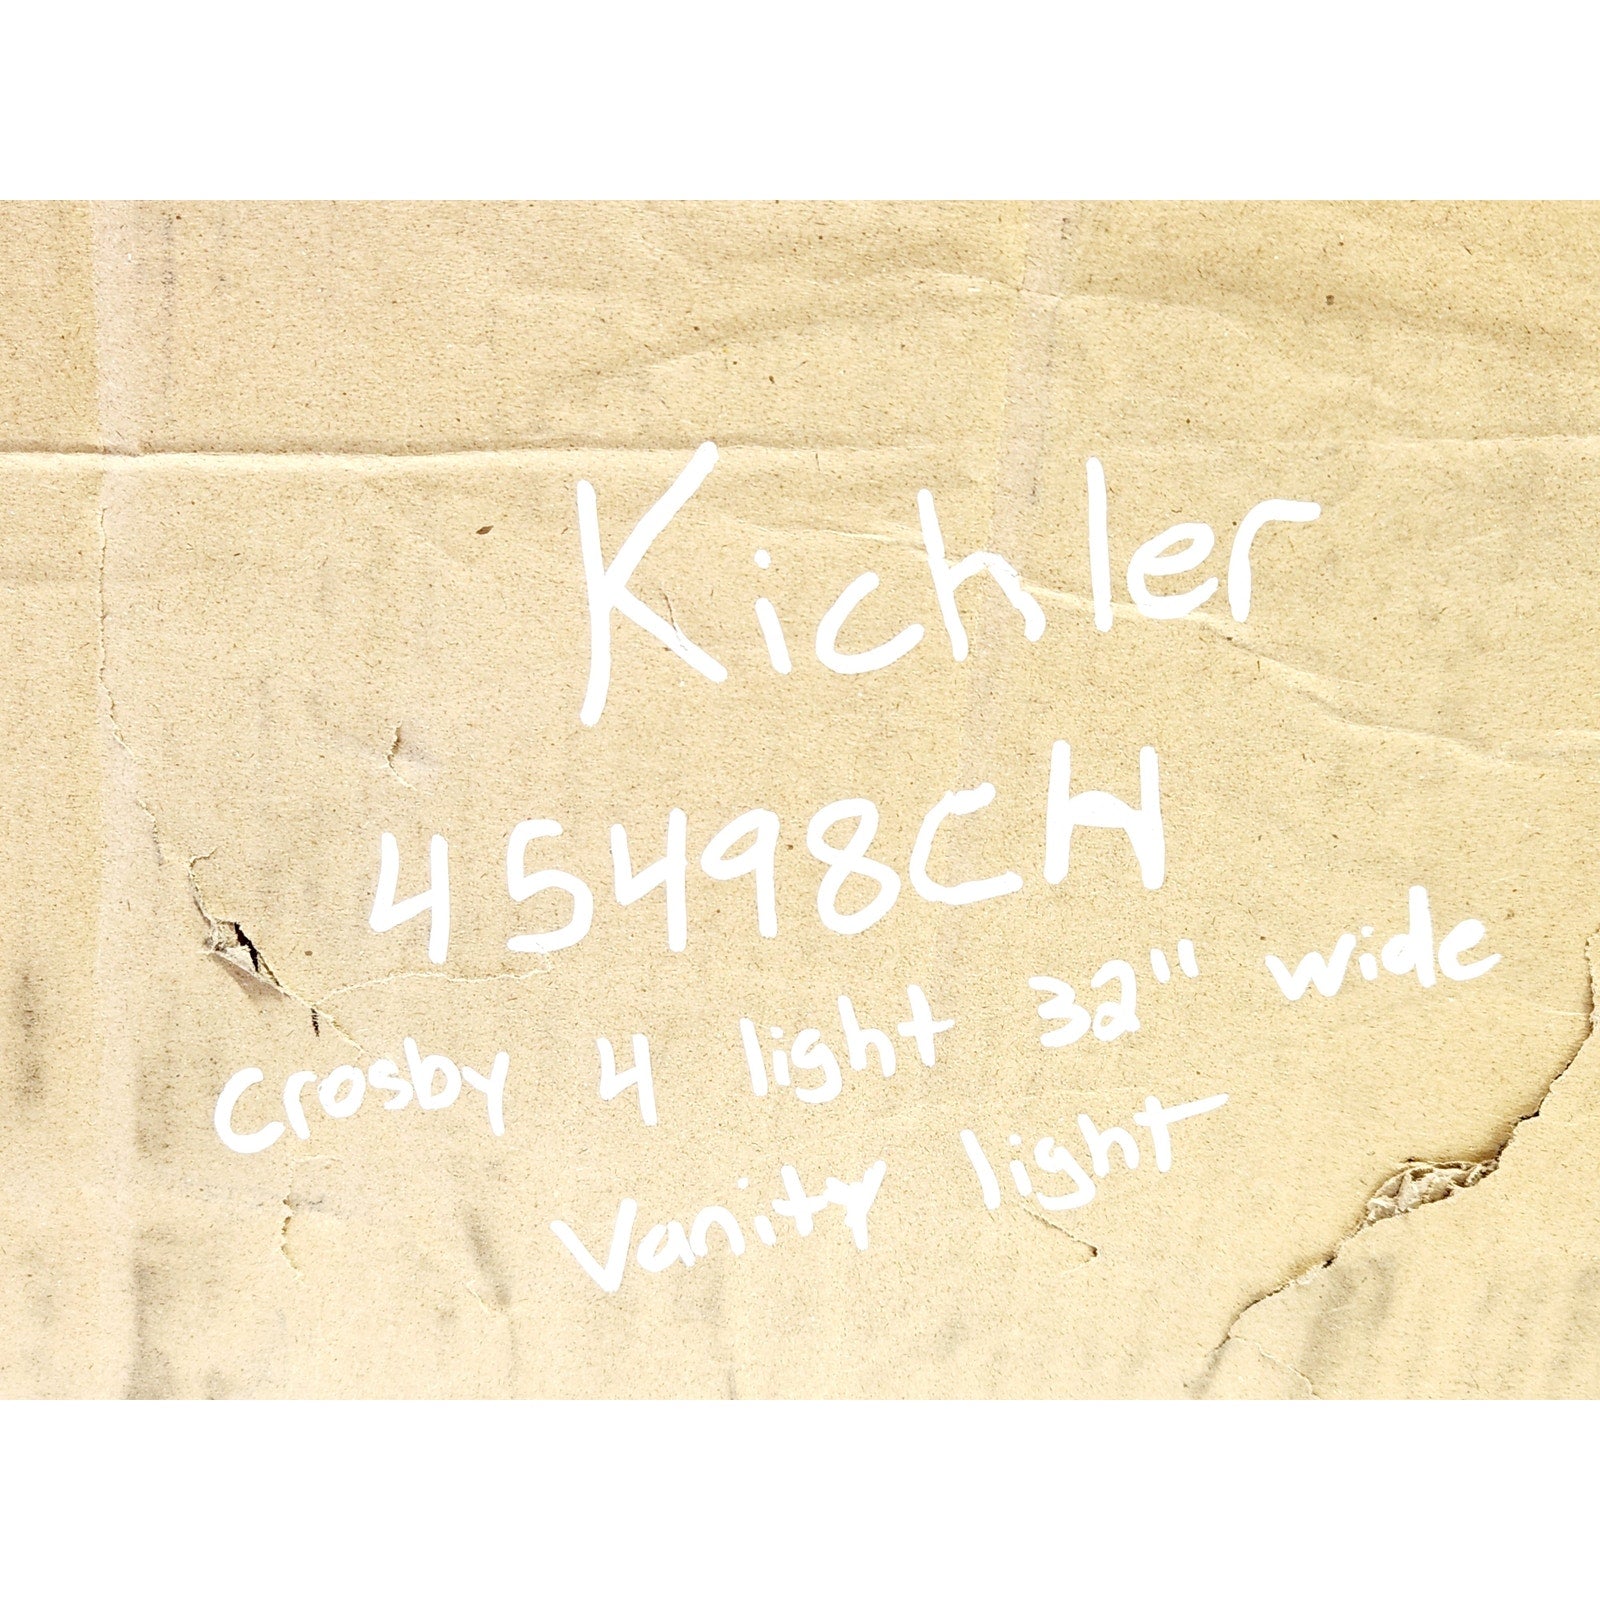 Kichler
45498CH
Crosby 4 light 32" wide
Vanity light